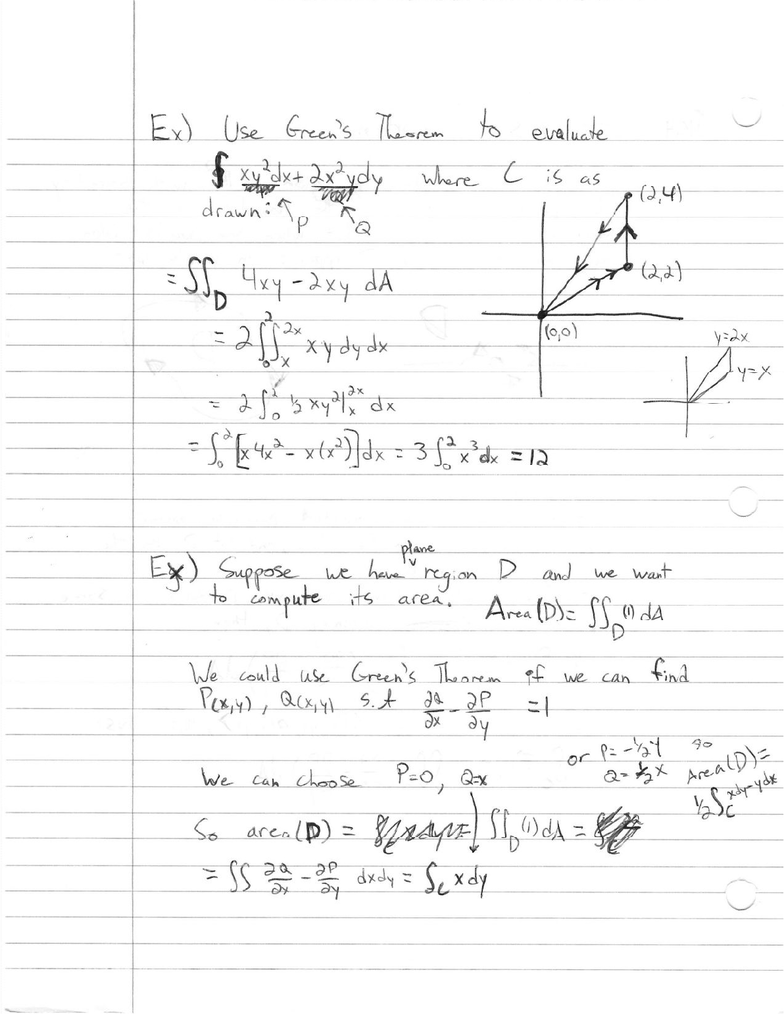 Ex) Use Green's Theorem to evaluate
∮ xy²dx + 2x²ydy where C is as
drawn: P Q
(2,4)
(2,2)
(0,0)
= ∬_D 4xy - 2xy dA
= 2∫₀²∫ₓ²ˣ xy dy dx
y=2x
y=x
= 2∫₀² ½ xy²|ₓ²ˣ dx
= ∫₀² [x4x² - x(x²)]dx = 3∫₀² x³dx = 12
plane
Ex) Suppose we have region D and we want
to compute its area. Area(D) = ∬_D (1) dA
We could use Green's Theorem if we can find
P(x,y), Q(x,y) s.t ∂Q/∂x - ∂P/∂y = 1
We can choose P=0, Q=x
or P= -½y so
Q= ½x Area(D)=
½∫_C xdy-ydx
So area(D) = ∬_D (1) dA =
= ∬ ∂Q/∂x - ∂P/∂y dxdy = ∫_C xdy